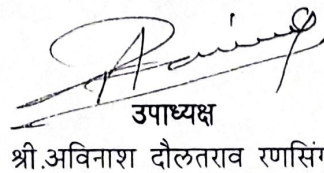 उपाध्यक्ष
श्री.अविनाश दौलतराव रणसिंग